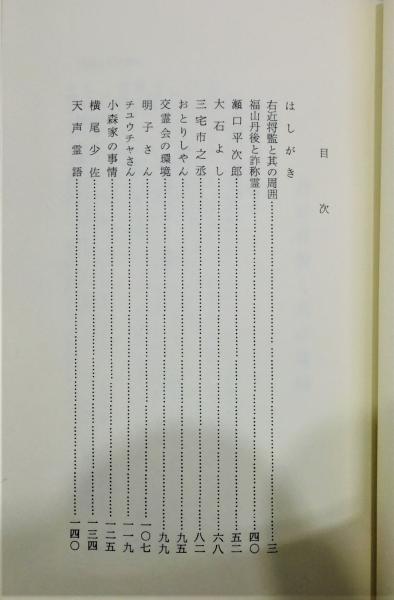 目次
はしがき
右近将監と其の周囲……三
福山丹後と詐称霊……四〇
瀬口平次郎……五二
大石よし……六八
三宅市之丞……八二
おとりしやん……九五
交霊会の環境……九九
明子さん……一〇七
チユウチヤさん……一一九
小森家の事情……一二五
横尾少佐……一三四
天声霊語……一四〇